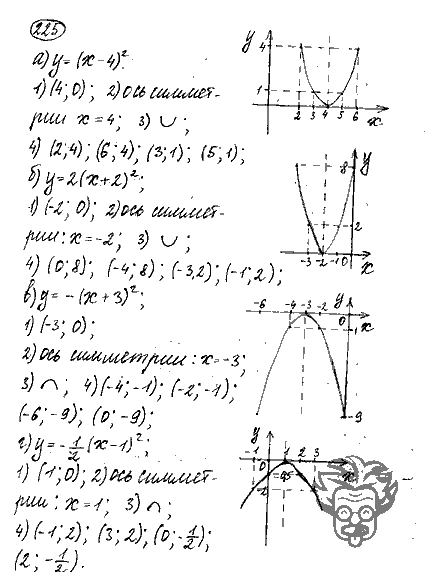 225
а) y = (x-4)².
1) (4; 0); 2) ось симмет-
рии x = 4; 3) ∪;
4) (2; 4); (6; 4); (3; 1); (5; 1);
б) y = 2(x+2)²;
1) (-2; 0); 2) ось симмет-
рии: x = -2; 3) ∪;
4) (0; 8); (-4; 8); (-3,2); (-1; 2);
в) y = -(x+3)²;
1) (-3; 0);
2) ось симметрии: x = -3;
3) ∩; 4) (-4; -1); (-2; -1);
(-6; -9); (0; -9);
г) y = -1/2 (x-1)²;
1) (1; 0); 2) ось симмет-
рии: x = 1; 3) ∩;
4) (-1; 2); (3; 2); (0; -1/2);
(2; -1/2).
y
4
1
2 3 4 5 6 x
8 y
2
-3 -2 -1 0 x
-6 -4 -3 -2 y
0 x
1
-9
y
-1 0 1 2 3 x
-2